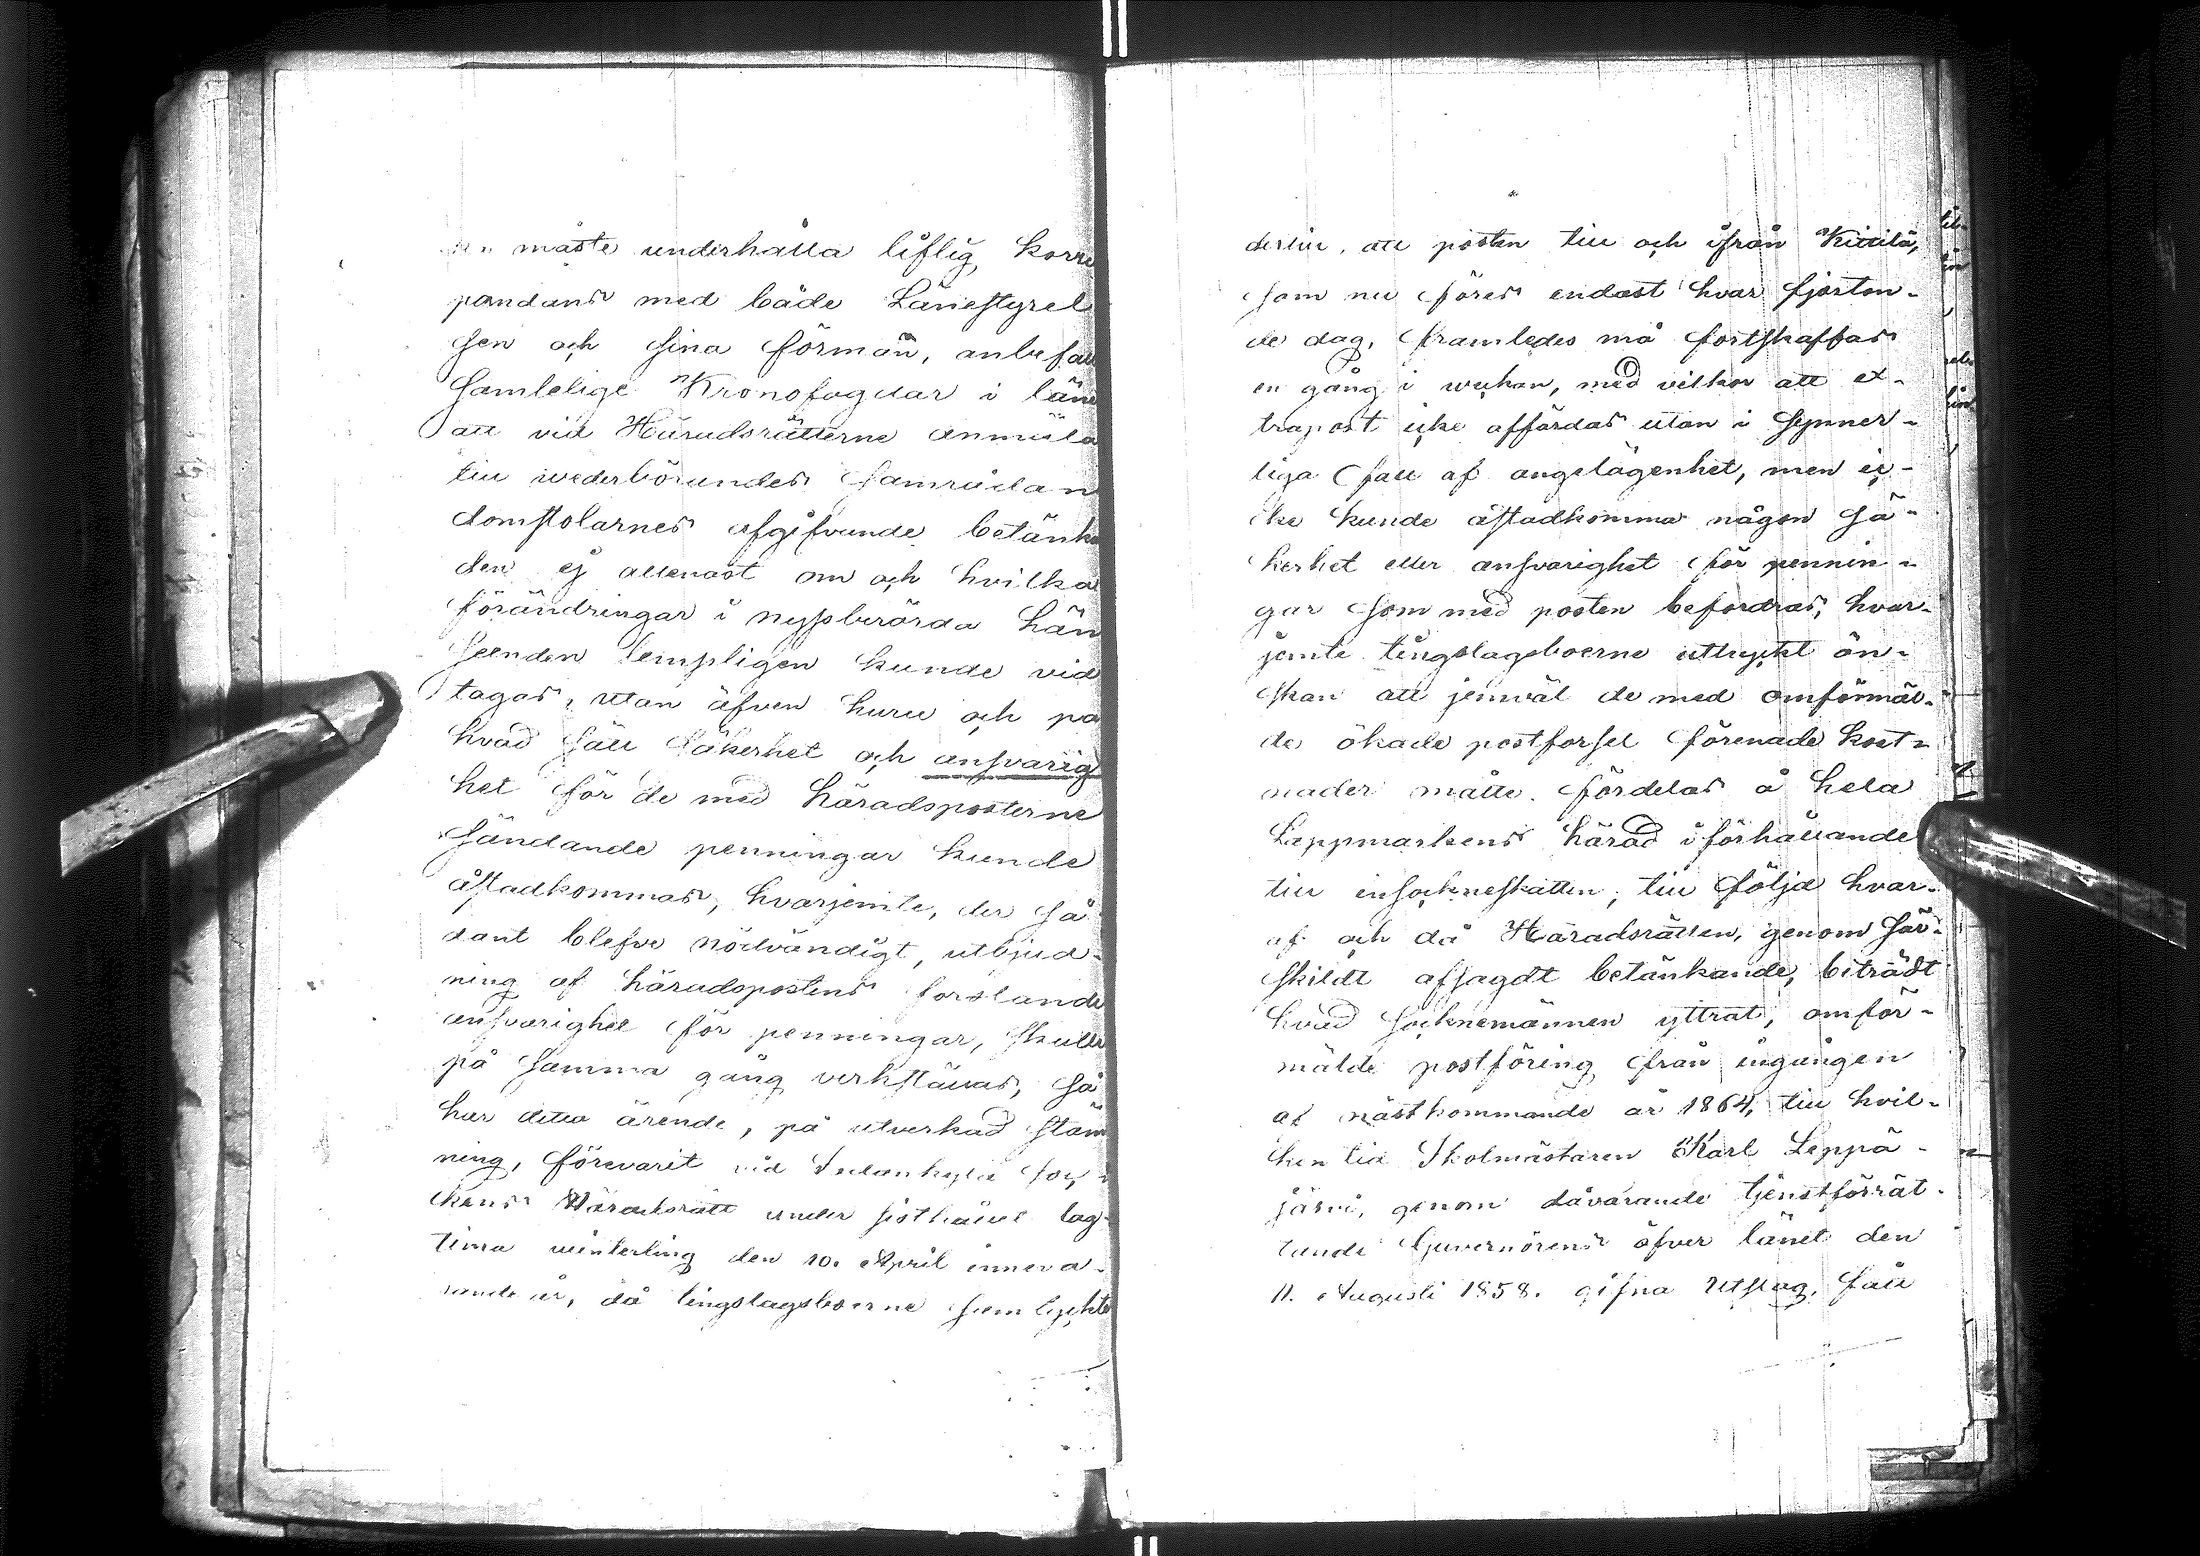 måste underhålla liflig korre
pondans med både Länestyrel
sen och sina förmän, anbefal
samtelige Kronofogdar i läne
att vid Häradsrätterne anmäla
till wederbörandes samrådan
domstolarnes afgifvande betänk
den ej allenast om och hvilka
förändringar i nyssberörda hän
seenden lempligen kunde vid
tagas, utan äfven huru och på
hvad sätt säkerhet och ansvarig
het för de med häradsposterne
sändande penningar kunde
åstadkommas, hvarjemte, der så
dant blefve nödvändigt, utbjud-
ning af häradspostens forslande
ansvarighet för penningar, skulle
på samma gång verkställas, så
har detta ärende, på utverkad stäm
ning, förevarit vid Sodankylä soc-
kens Häradsrätt under sisthållet lag-
tima winterting den 10. April inneva-
rande år, då tingslagsboerne samtyckte
dertill, att posten till och ifrån Kittilä,
som nu föres endast hvar fjorton-
de dag, framledes må fortskaffas
en gång i wekan, med vilkor att ex-
trapost icke affärdas utan i synner-
liga fall af angelägenhet, men ic-
ke kunde åstadkomma någon sä-
kerhet eller ansvarighet för pennin-
gar som med posten befordras, hvar-
jemte tingslagsboerne uttryckt ön-
skan att jemväl de med omförmäl-
de ökade postforsel förenade kost-
nader måtte fördelas å hela
Lappmarkens härad i förhållande
till insockneskatten, till följd hvar-
af och då Häradsrätten, genom sär-
skildt afsagdt betänkande, biträdt
hvad socknemännen yttrat, omför-
mälde postföring från ingången
af nästkommande år 1864, till hvil-
ken tid Skolmästaren Karl Leppä-
järvi, genom dåvarande tjenstförrät-
tande Guvernörens öfver länet den
11. Augusti 1858. gifna utslag, fått